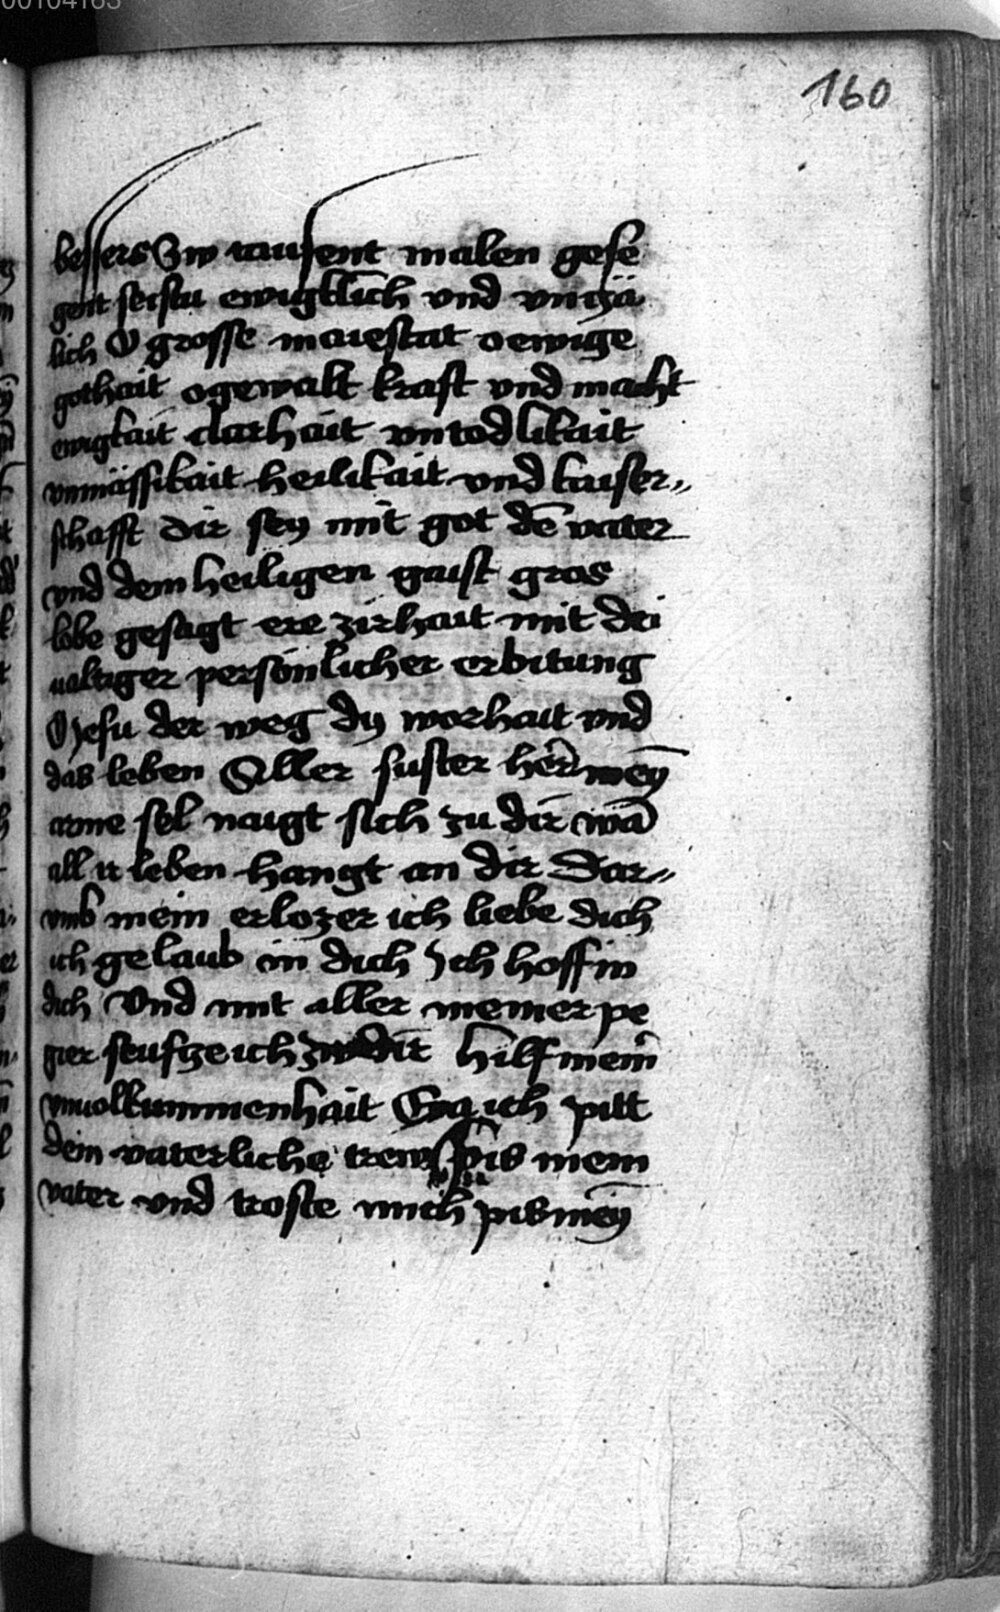 00104163
160
bessers Zw tausent malen gese
gent seistu ewigklich vnd vnczä
lich O grosse maiestat o ewige
gothait o gewalt kraft vnd macht
ewigkait clarhait vntodlikait
vnmässikait heilikait vnd kaiser„
schafft dir sey mit got dē vater
vnd dem heiligen gaist gros
lobe gesagt ere zirhait mit dri
ualtiger persönlicher erbitung
O Jesu der weg dy worhait vnd
das leben Aller suster her meȳ
arme sel naigt sich zu dir wā
all ir leben hangt an dir Dar„
vmb mein erlozer ich liebe dich
ich gelaub in dich Ich hoff in
dich Vnd mit aller meiner pe
gier seufze ich zw dir hilf meiner
vnuolkummenhait Eya ich pitt
dein vaterliche trew pis mein
vater vnd troste mich pis meȳ